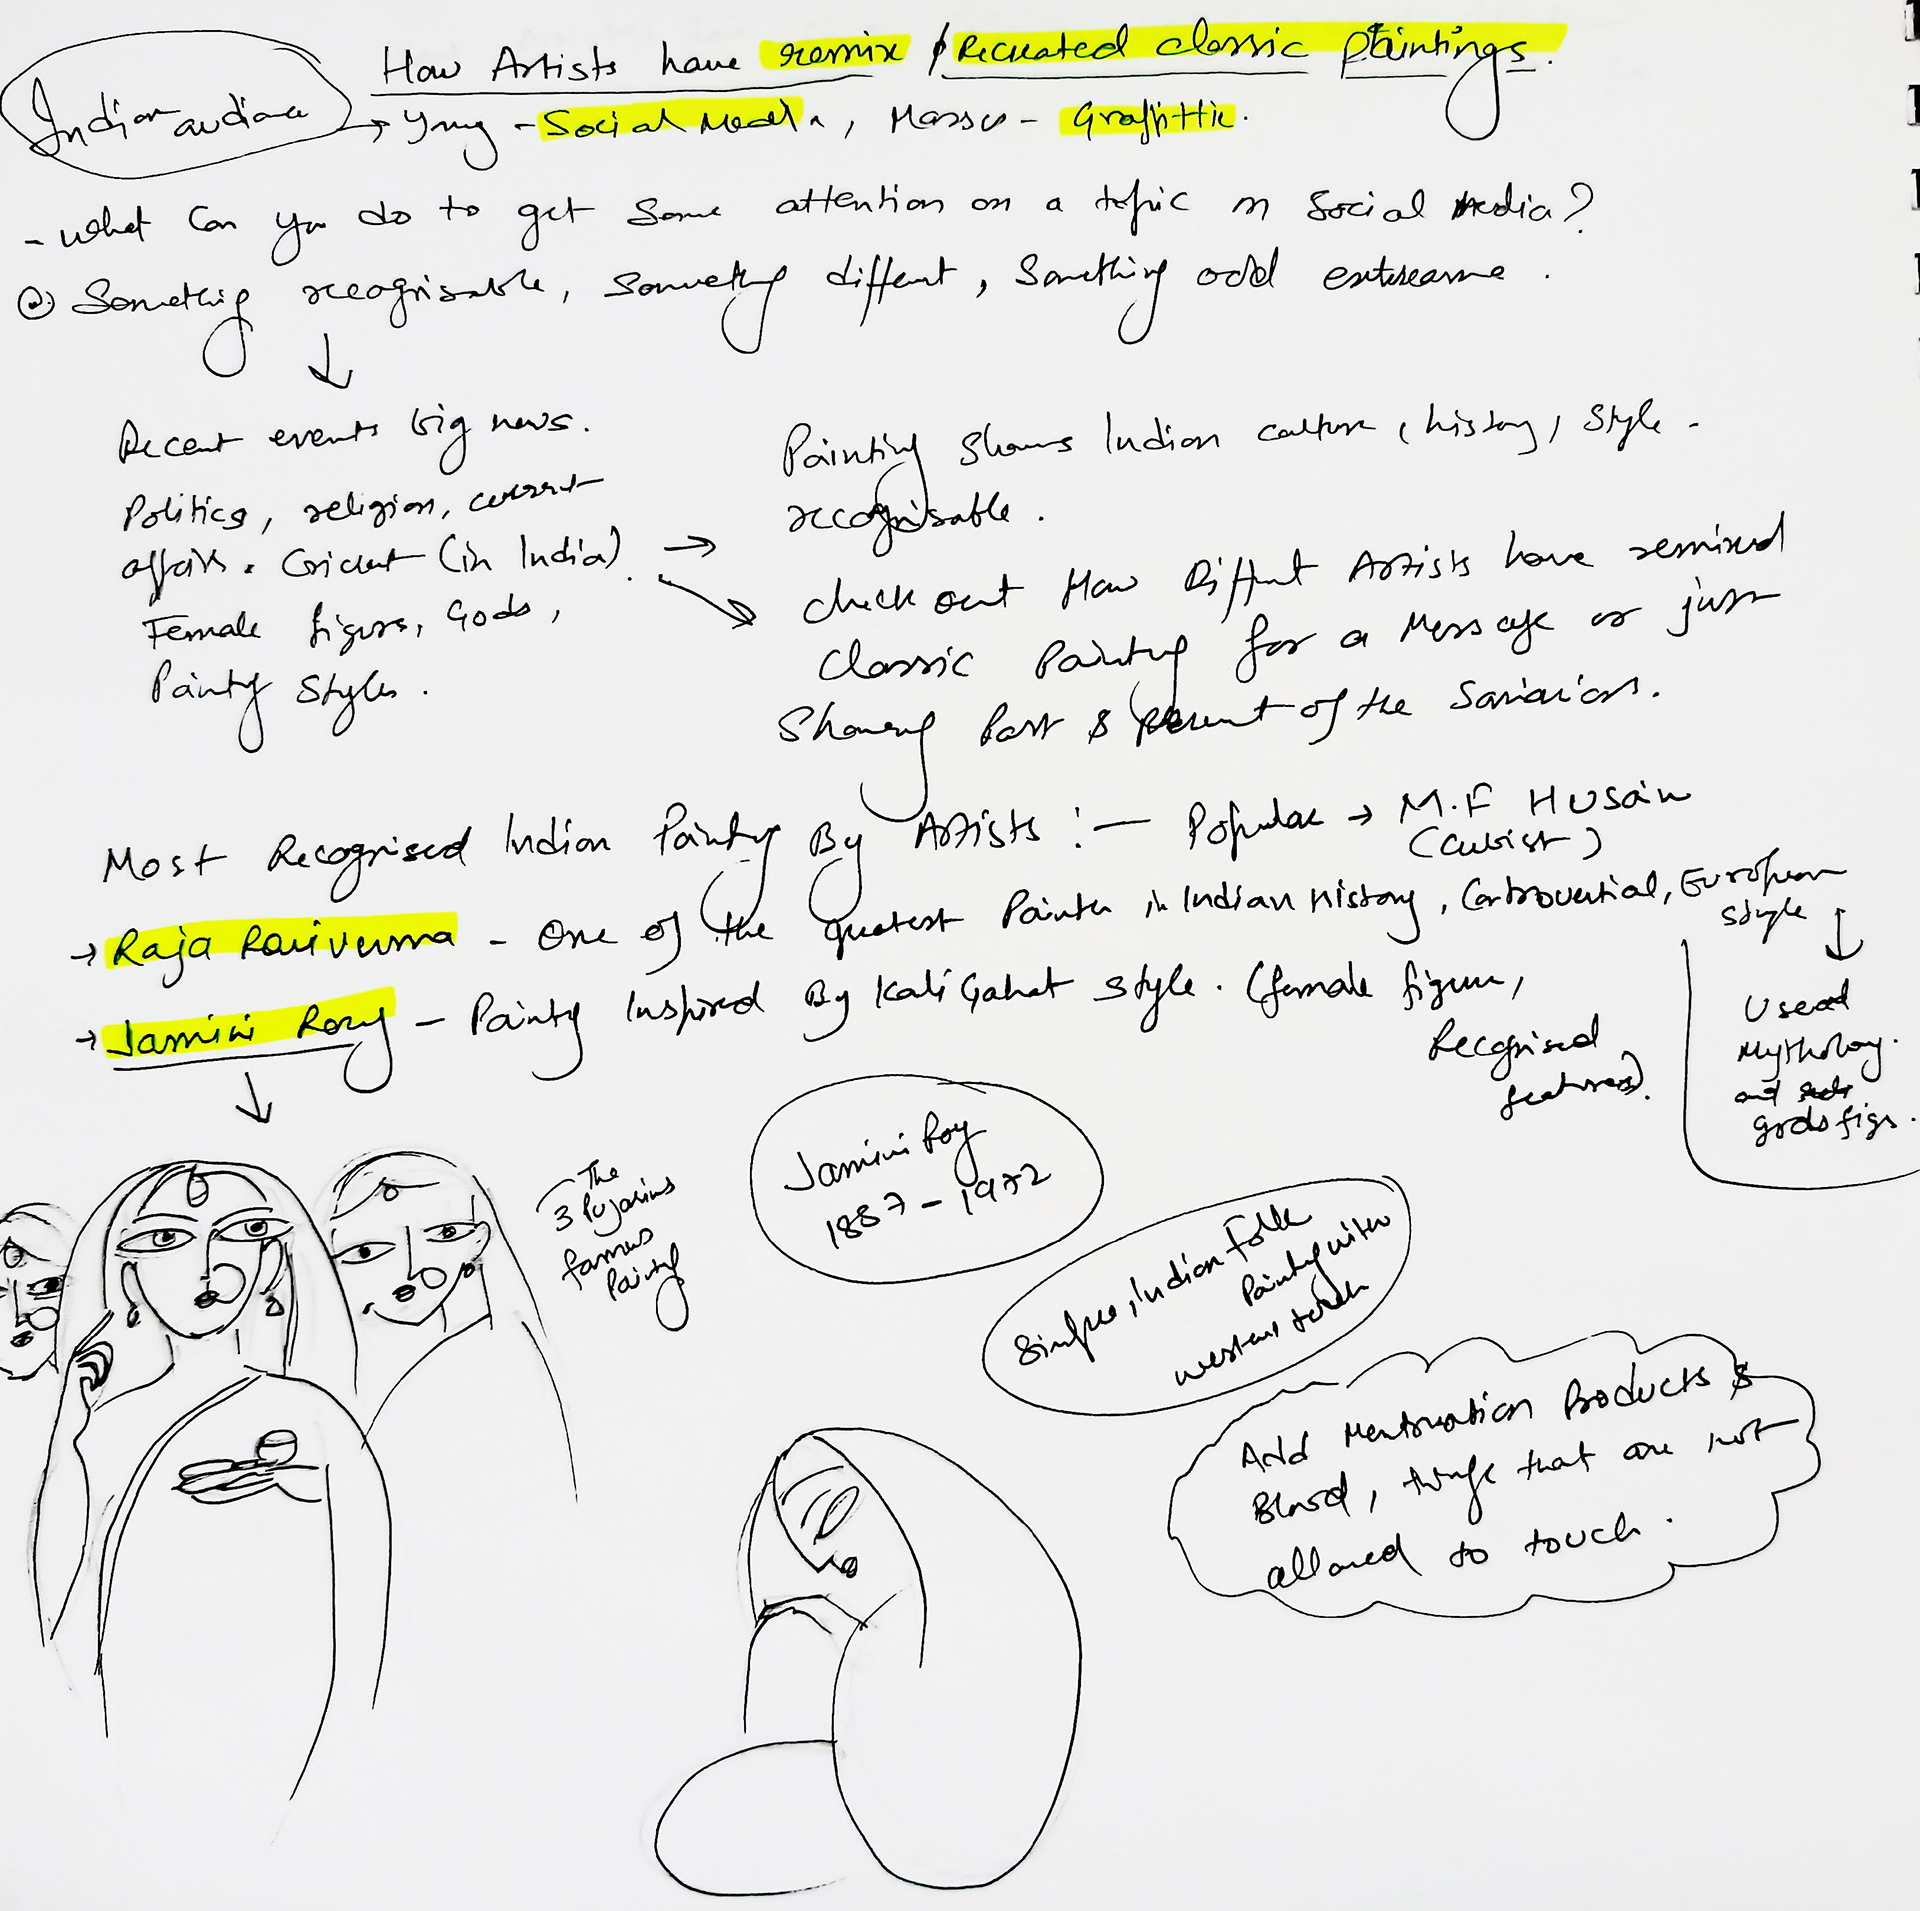 How Artists have remix / Recreated classic Paintings.
Indian audience
→ Young - Social Media, Masses - Graffittie.
- What Can you do to get some attention on a topic on Social Media?
Something recognisable, Something different, Something odd extreame.
↓
Recent events big news.
Politics, religion, current
affairs. Cricket (in India)
Female figure, Gods,
Painty Styles.
→ Painting Shows Indian culture, history, style.
recognisable.
Check out How Diffrent Artists have remixed
Classic Painting for a Message or just
Showing Past & Present of the
Most Recognised Indian Painty By Artists :— Popular → M.F HUSain
(Cubist)
→ Raja Raviverma - One of the greatest Painter in Indian History, Controvertial, European
style
→ Jamini Roy - Painty Inspired By Kali Gahat style. (female figure,
Recognised
features).
Used
Mythology.
and
gods figs.
The
3 Pujarins
famous
Painty
Jamini Roy
1887 - 1972
Simple, Indian Folk
Painty with
western touch
Add Mentruation Products &
Blood, things that are not
allowed to touch.